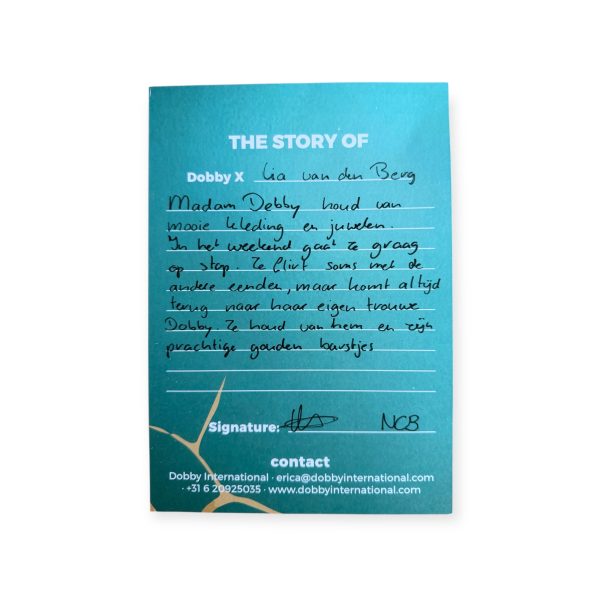 THE STORY OF
Dobby X Lia van den Berg
Madam Debby houd van
mooie kleding en juwelen.
In het weekend gaat ze graag
op stap. Ze flirt soms met de
andere eenden, maar komt altijd
terug naar haar eigen trouwe
Dobby. Ze houd van hem en zijn
prachtige gouden barstjes
Signature: NCB
contact
Dobby International · erica@dobbyinternational.com
· +31 6 20925035 · www.dobbyinternational.com